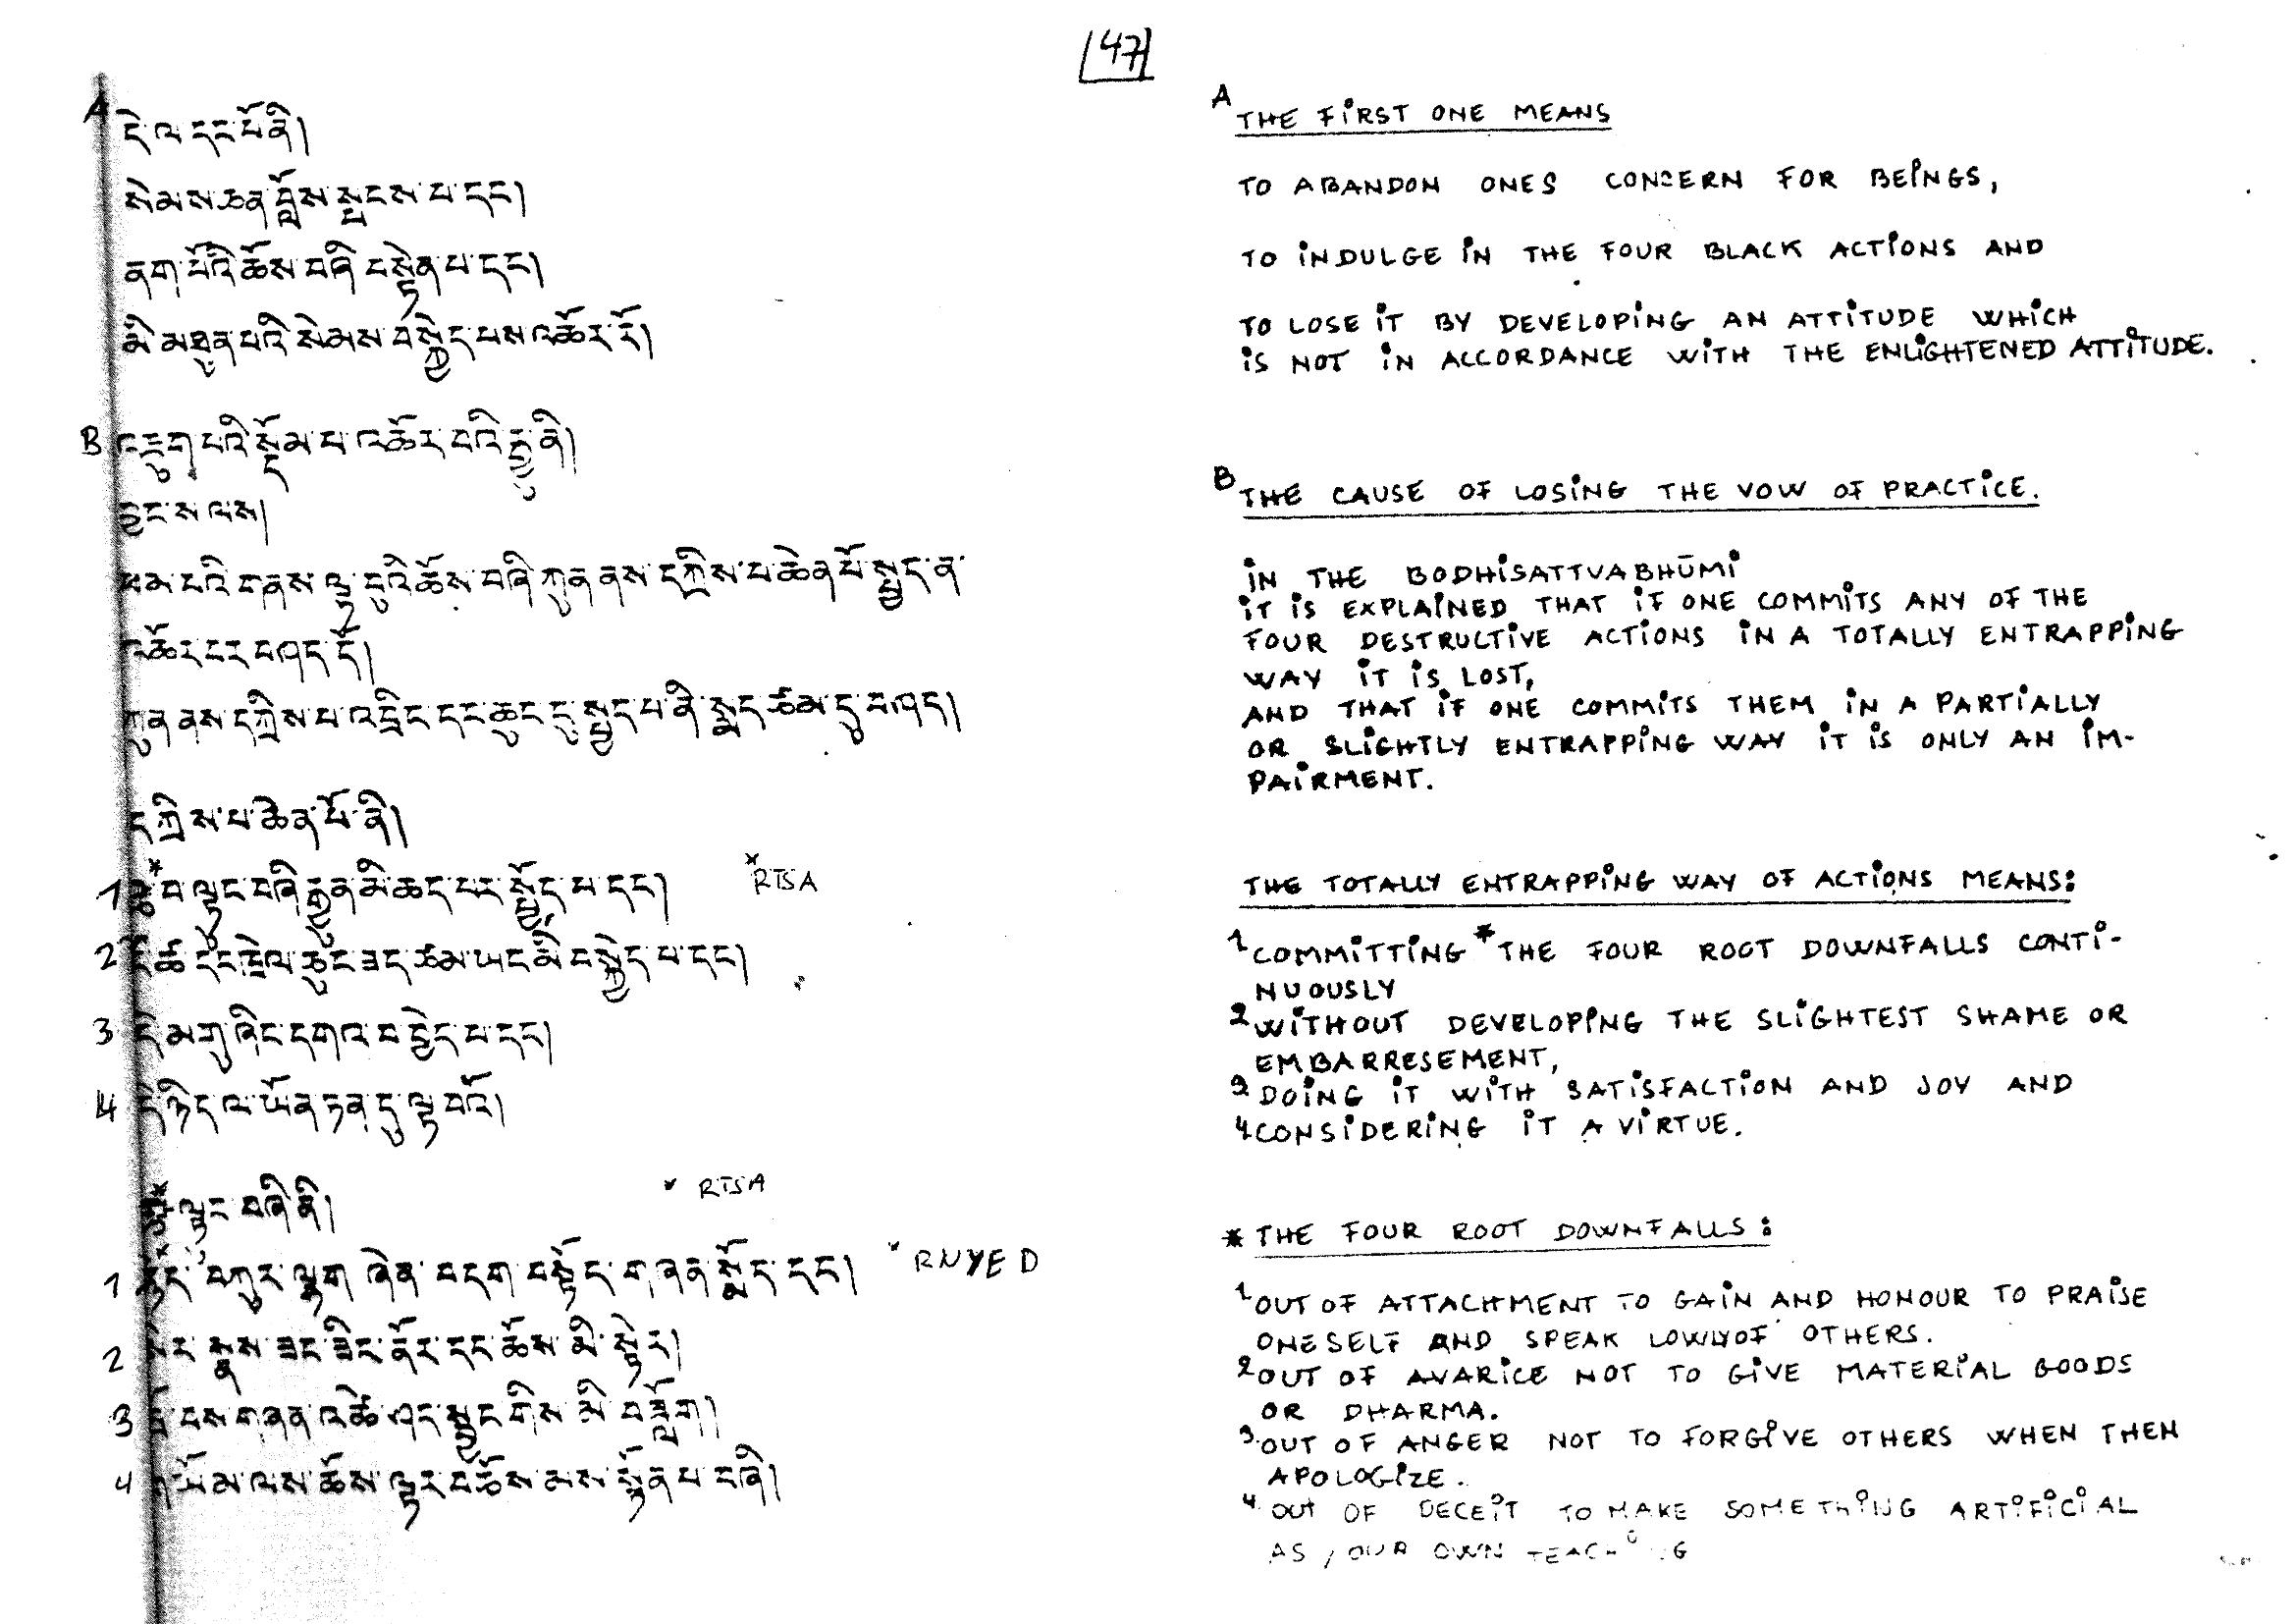 47
A
དེ་ལ་དང་པོ་ནི།
སེམས་ཅན་བློས་སྤངས་པ་དང།
ནག་པོའི་ཆོས་བཞི་བསྟེན་པ་དང།
མི་མཐུན་པའི་སེམས་བསྐྱེད་པས་འཆོར་རོ།
B འཇུག་པའི་སྡོམ་པ་འཆོར་བའི་རྒྱུ་ནི།
བྱང་ས་ལས།
ཕམ་པའི་གནས་ལྟ་བུའི་ཆོས་བཞི་ཀུན་ནས་དཀྲིས་པ་ཆེན་པོ་སྤྱད་ན་
འཆོར་བར་བཤད་དོ།
ཀུན་ནས་དཀྲིས་པ་འབྲིང་དང་ཆུང་ངུ་སྤྱད་པ་ནི་སྨད་ཙམ་དུ་བཤད།
དཀྲིས་པ་ཆེན་པོ་ནི།
1 བ་ལྟུང་བཞི་རྒྱུན་མི་ཆད་པར་སྤྱོད་པ་དང། * RTSA
2 ངོ་ཚ་དང་ཁྲེལ་ཆུང་ཟད་ཙམ་ཡང་མི་བསྐྱེད་པ་དང།
3 དེ་མགུ་ཞིང་དགའ་བ་བྱེད་པ་དང།
4 དེ་ཉིད་ལ་ཡོན་ཏན་དུ་ལྟ་བའོ།
ལྟུང་བཞི་ནི། * RTSA
1 བཀུར་ལྷག་ཞེན་བདག་བསྟོད་གཞན་སྨོད་དང། * RNYED
2 སེར་སྣས་ཟང་ཟིང་ནོར་དང་ཆོས་མི་སྟེར།
3 པས་གཞན་འཚེ་ཤད་སྦྱང་གིས་མི་བཟློག།
4 གཡོམ་ལས་ཆོས་ལྟར་བཅོས་མས་སྟོན་པ་བཞི།
A THE FIRST ONE MEANS
TO ABANDON ONES CONCERN FOR BEINGS,
TO INDULGE IN THE FOUR BLACK ACTIONS AND
TO LOSE IT BY DEVELOPING AN ATTITUDE WHICH
IS NOT IN ACCORDANCE WITH THE ENLIGHTENED ATTITUDE.
B THE CAUSE OF LOSING THE VOW OF PRACTICE.
IN THE BODHISATTVABHŪMI
IT IS EXPLAINED THAT IF ONE COMMITS ANY OF THE
FOUR DESTRUCTIVE ACTIONS IN A TOTALLY ENTRAPPING
WAY IT IS LOST,
AND THAT IF ONE COMMITS THEM IN A PARTIALLY
OR SLIGHTLY ENTRAPPING WAY IT IS ONLY AN IM-
PAIRMENT.
THE TOTALLY ENTRAPPING WAY OF ACTIONS MEANS:
1 COMMITTING * THE FOUR ROOT DOWNFALLS CONTI-
NUOUSLY
2 WITHOUT DEVELOPING THE SLIGHTEST SHAME OR
EMBARRESEMENT,
3 DOING IT WITH SATISFACTION AND JOY AND
4 CONSIDERING IT A VIRTUE.
* THE FOUR ROOT DOWNFALLS:
1 OUT OF ATTACHMENT TO GAIN AND HONOUR TO PRAISE
ONESELF AND SPEAK LOWLY OF OTHERS.
2 OUT OF AVARICE NOT TO GIVE MATERIAL GOODS
OR DHARMA.
3. OUT OF ANGER NOT TO FORGIVE OTHERS WHEN THEN
APOLOGIZE.
4. OUT OF DECEIT TO MAKE SOMETHING ARTIFICIAL
AS YOUR OWN TEACHING